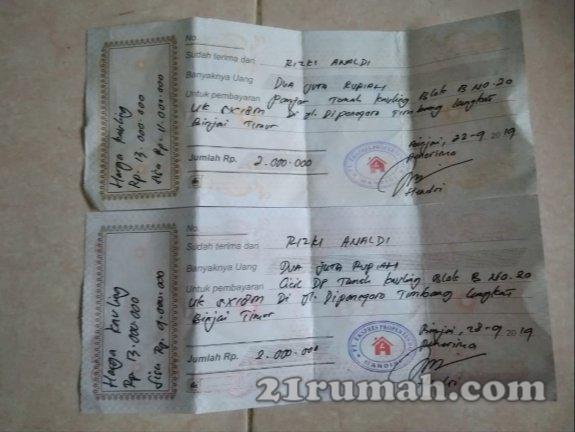 No.
Sudah terima dari RIZKI ANALDI
Banyaknya Uang DUA JUTA RUPIAH
Untuk pembayaran Panjar Tanah kavling Blok B NO.20
UK 5X18M Di Jl. Diponegoro Timbang Langkat
Binjai Timur
Jumlah Rp. 2.000.000
Binjai, 22-9 2019
Penerima
Hendri
Harga kavling
Rp. 13.000.000
Sisa Rp. 11.000.000
No.
Sudah terima dari RIZKI ANALDI
Banyaknya Uang DUA JUTA RUPIAH
Untuk pembayaran Cicil DP Tanah kavling Blok B NO.20
UK 5X18M Di Jl. Diponegoro Timbang Langkat
Binjai Timur
Jumlah Rp. 2.000.000
Binjai, 28-9 2019
Penerima
Harga kavling
Rp. 13.000.000
Sisa Rp. 9.000.000
21rumah.com